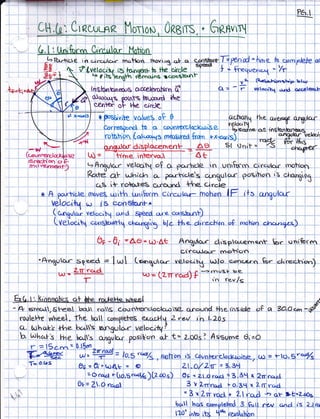 PG.1
CH.6: CIRCULAR MOTION, ORBITS, + GRAVITY
6.1: Uniform Circular Motion
↳ Particle in circular motion moving at a constant speed
T = period = time to complete
v (velocity) is tangent to the circle
↳ its length remains constant
f = frequency = 1/T
Instantaneous acceleration a
always points toward the
center of the circle.
a = v²/r
Relationship b/w
velocity and acceleration
• positive values of θ
correspond to a counterclockwise
rotation (always measured from +x-axis)
actually the average angular
velocity
same as instantaneous
angular velocity
for this
chapter
ω = angular displacement / time interval = Δθ / Δt
SI Unit = rad/s
(counterclockwise
direction of
movement)
↳ Angular velocity of a particle in uniform circular motion
Rate at which a particle's angular position is changing
as it rotates around the circle
• A particle moves with uniform circular motion IF its angular
velocity ω is constant.
(angular velocity and speed are constant)
(velocity constantly changing b/c the direction of motion changes)
θf - θi = Δθ = ωΔt Angular displacement for uniform
circular motion
• Angular speed = |ω| (angular velocity w/o concern for direction)
ω = 2π rad / T
ω = (2π rad) f → must be
in rev/s
Ex 6.1: Kinematics at the roulette wheel
• A small, steel ball rolls counterclockwise around the inside of a 30.0cm
roulette wheel. The ball completes exactly 2 rev in 1.20s
a. What's the ball's angular velocity?
b. What's the ball's angular position at t = 2.00s? Assume θi=0
r = 15cm = 0.15m
ω = 2π rad / T = 10.5 rad/s, motion is counterclockwise, ω = +10.5 rad/s
θf = θi + ωΔt
= 0 rad + (10.5 rad/s)(2.00s)
θf = 21.0 rad
21.0/2π = 3.34
θf = 21.0 rad = 3.34 × 2π rad
= 3 × 2π rad + 0.34 × 2π rad
= 3 × 2π rad + 2.1 rad → at t = 2.00s
ball has completed 3 full rev and is 2.1 rad
120° into its 4th revolution